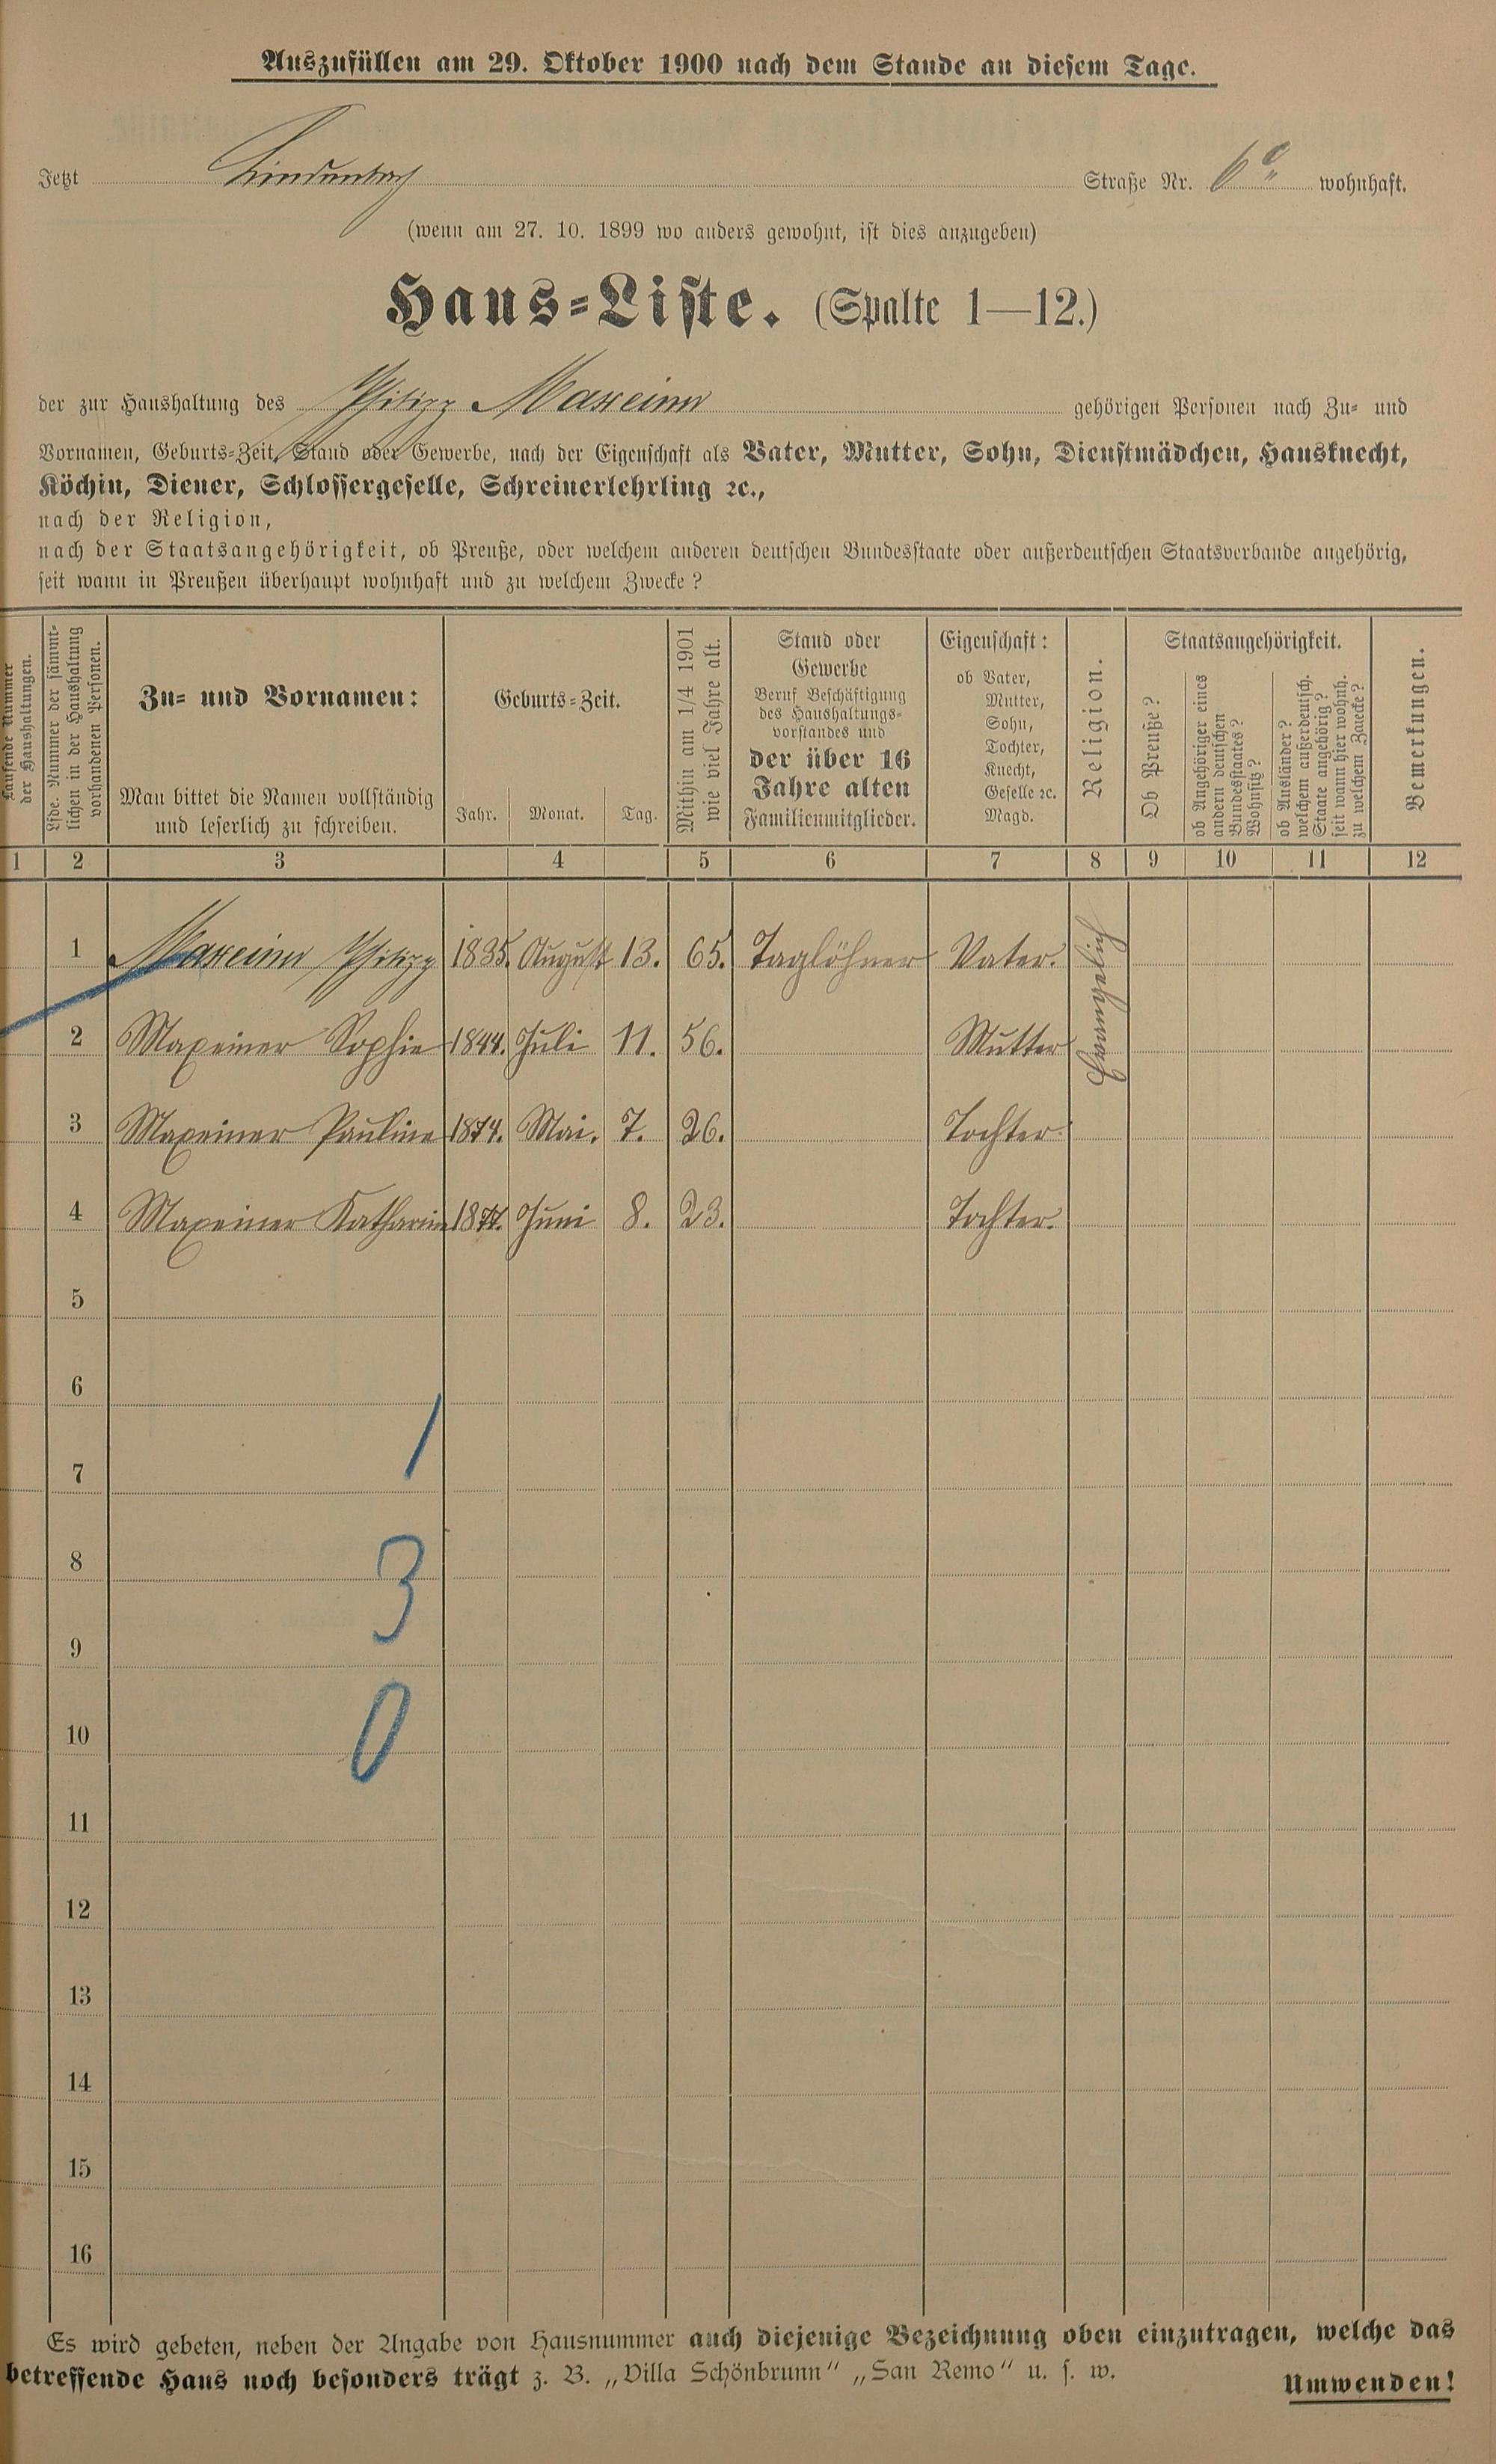 Auszufüllen am 29. Oktober 1900 nach dem Stande an diesem Tage.
Jetzt Lindenbach Straße Nr. 6a wohnhaft.
(wenn am 27. 10. 1899 wo anders gewohnt, ist dies anzugeben)
Haus-Liste. (Spalte 1—12.)
der zur Haushaltung des Philipp Maxeiner gehörigen Personen nach Zu- und
Vornamen, Geburts-Zeit, Stand oder Gewerbe, nach der Eigenschaft als Vater, Mutter, Sohn, Dienstmädchen, Hausknecht,
Köchin, Diener, Schlossergeselle, Schreinerlehrling ꝛc.,
nach der Religion,
nach der Staatsangehörigkeit, ob Preuße, oder welchem anderen deutschen Bundesstaate oder außerdeutschen Staatsverbande angehörig,
seit wann in Preußen überhaupt wohnhaft und zu welchem Zwecke?
Laufende Nummer
der Haushaltungen.
Lfde. Nummer der sämmt-
lichen in der Haushaltung
vorhandenen Personen.
Zu- und Vornamen:
Man bittet die Namen vollständig
und leserlich zu schreiben.
Geburts-Zeit.
Jahr. Monat. Tag.
Mithin am 1/4 1901
wie viel Jahre alt.
Stand oder
Gewerbe
Beruf Beschäftigung
des Haushaltungs-
vorstandes und
der über 16
Jahre alten
Familienmitglieder.
Eigenschaft:
ob Vater,
Mutter,
Sohn,
Tochter,
Knecht,
Geselle ꝛc.
Magd.
Religion.
Staatsangehörigkeit.
Ob Preuße?
ob Angehöriger eines
andern deutschen
Bundesstaates?
Wohnsitz?
ob Ausländer?
welchem außerdeutsch.
Staate angehörig?
seit wann hier wohnh.
zu welchem Zwecke?
Bemerkungen.
1 2 3 4 5 6 7 8 9 10 11 12
1 Maxeiner Philipp 1835. August 13. 65. Taglöhner Vater. Evangelich
2 Maxeiner Sophie 1844. Juli 11. 56. Mutter
3 Maxeiner Pauline 1874. Mai. 7. 26. Tochter.
4 Maxeiner Katharine 1877. Juni 8. 23. Tochter.
5
6
1
7
8
3
9
10
0
11
12
13
14
15
16
Es wird gebeten, neben der Angabe von Hausnummer auch diejenige Bezeichnung oben einzutragen, welche das
betreffende Haus noch besonders trägt z. B. „Villa Schönbrunn“ „San Remo“ u. s. w.
Umwenden!